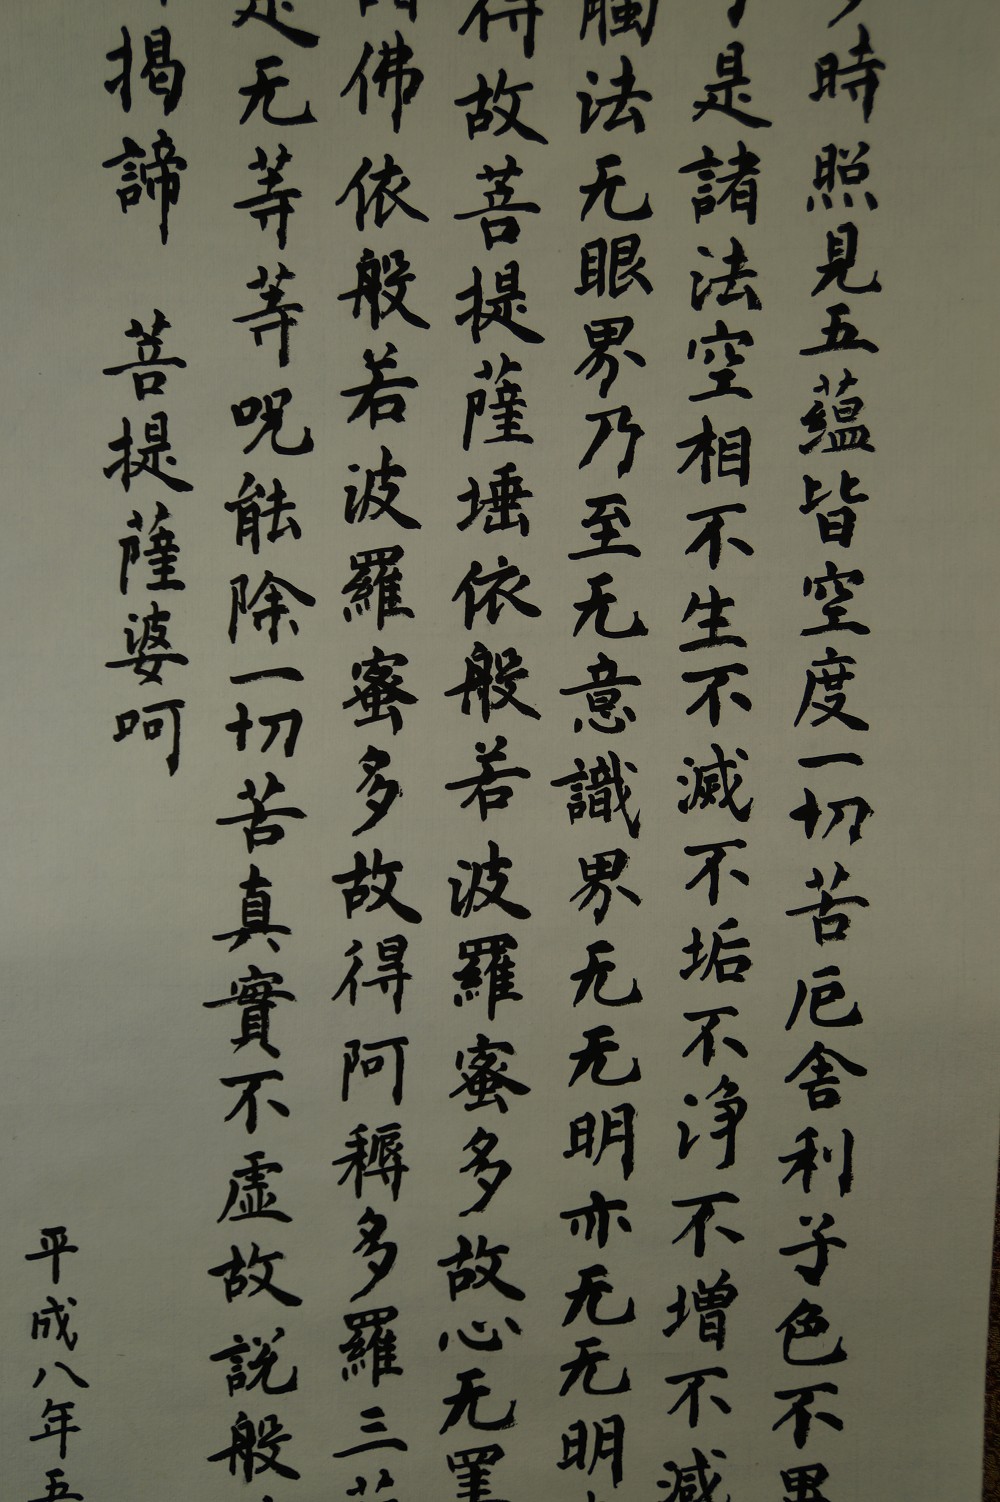 時照見五蘊皆空度一切苦厄舎利子色不異
是諸法空相不生不滅不垢不浄不増不減
觸法无眼界乃至无意識界无无明亦无无明
得故菩提薩埵依般若波羅蜜多故心无罣
佛依般若波羅蜜多故得阿耨多羅三
是无等等呪能除一切苦真實不虚故説般
揭諦 菩提薩婆呵
平成八年五